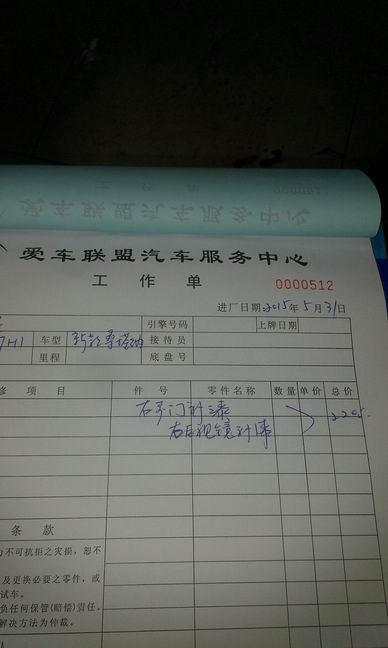 爱车联盟汽车服务中心
工作单
0000512
进厂日期2015年5月31日
引擎号码 上牌日期
7H1 车型 接待员
里程 底盘号
修项目 件号 零件名称 数量 单价 总价
右 门补漆
右后视镜补漆
条款
力不可抗拒之灾损,恕不
及更换必要之零件,或
试车。
负任何保管(赔偿)责任。
解决方法为仲裁。